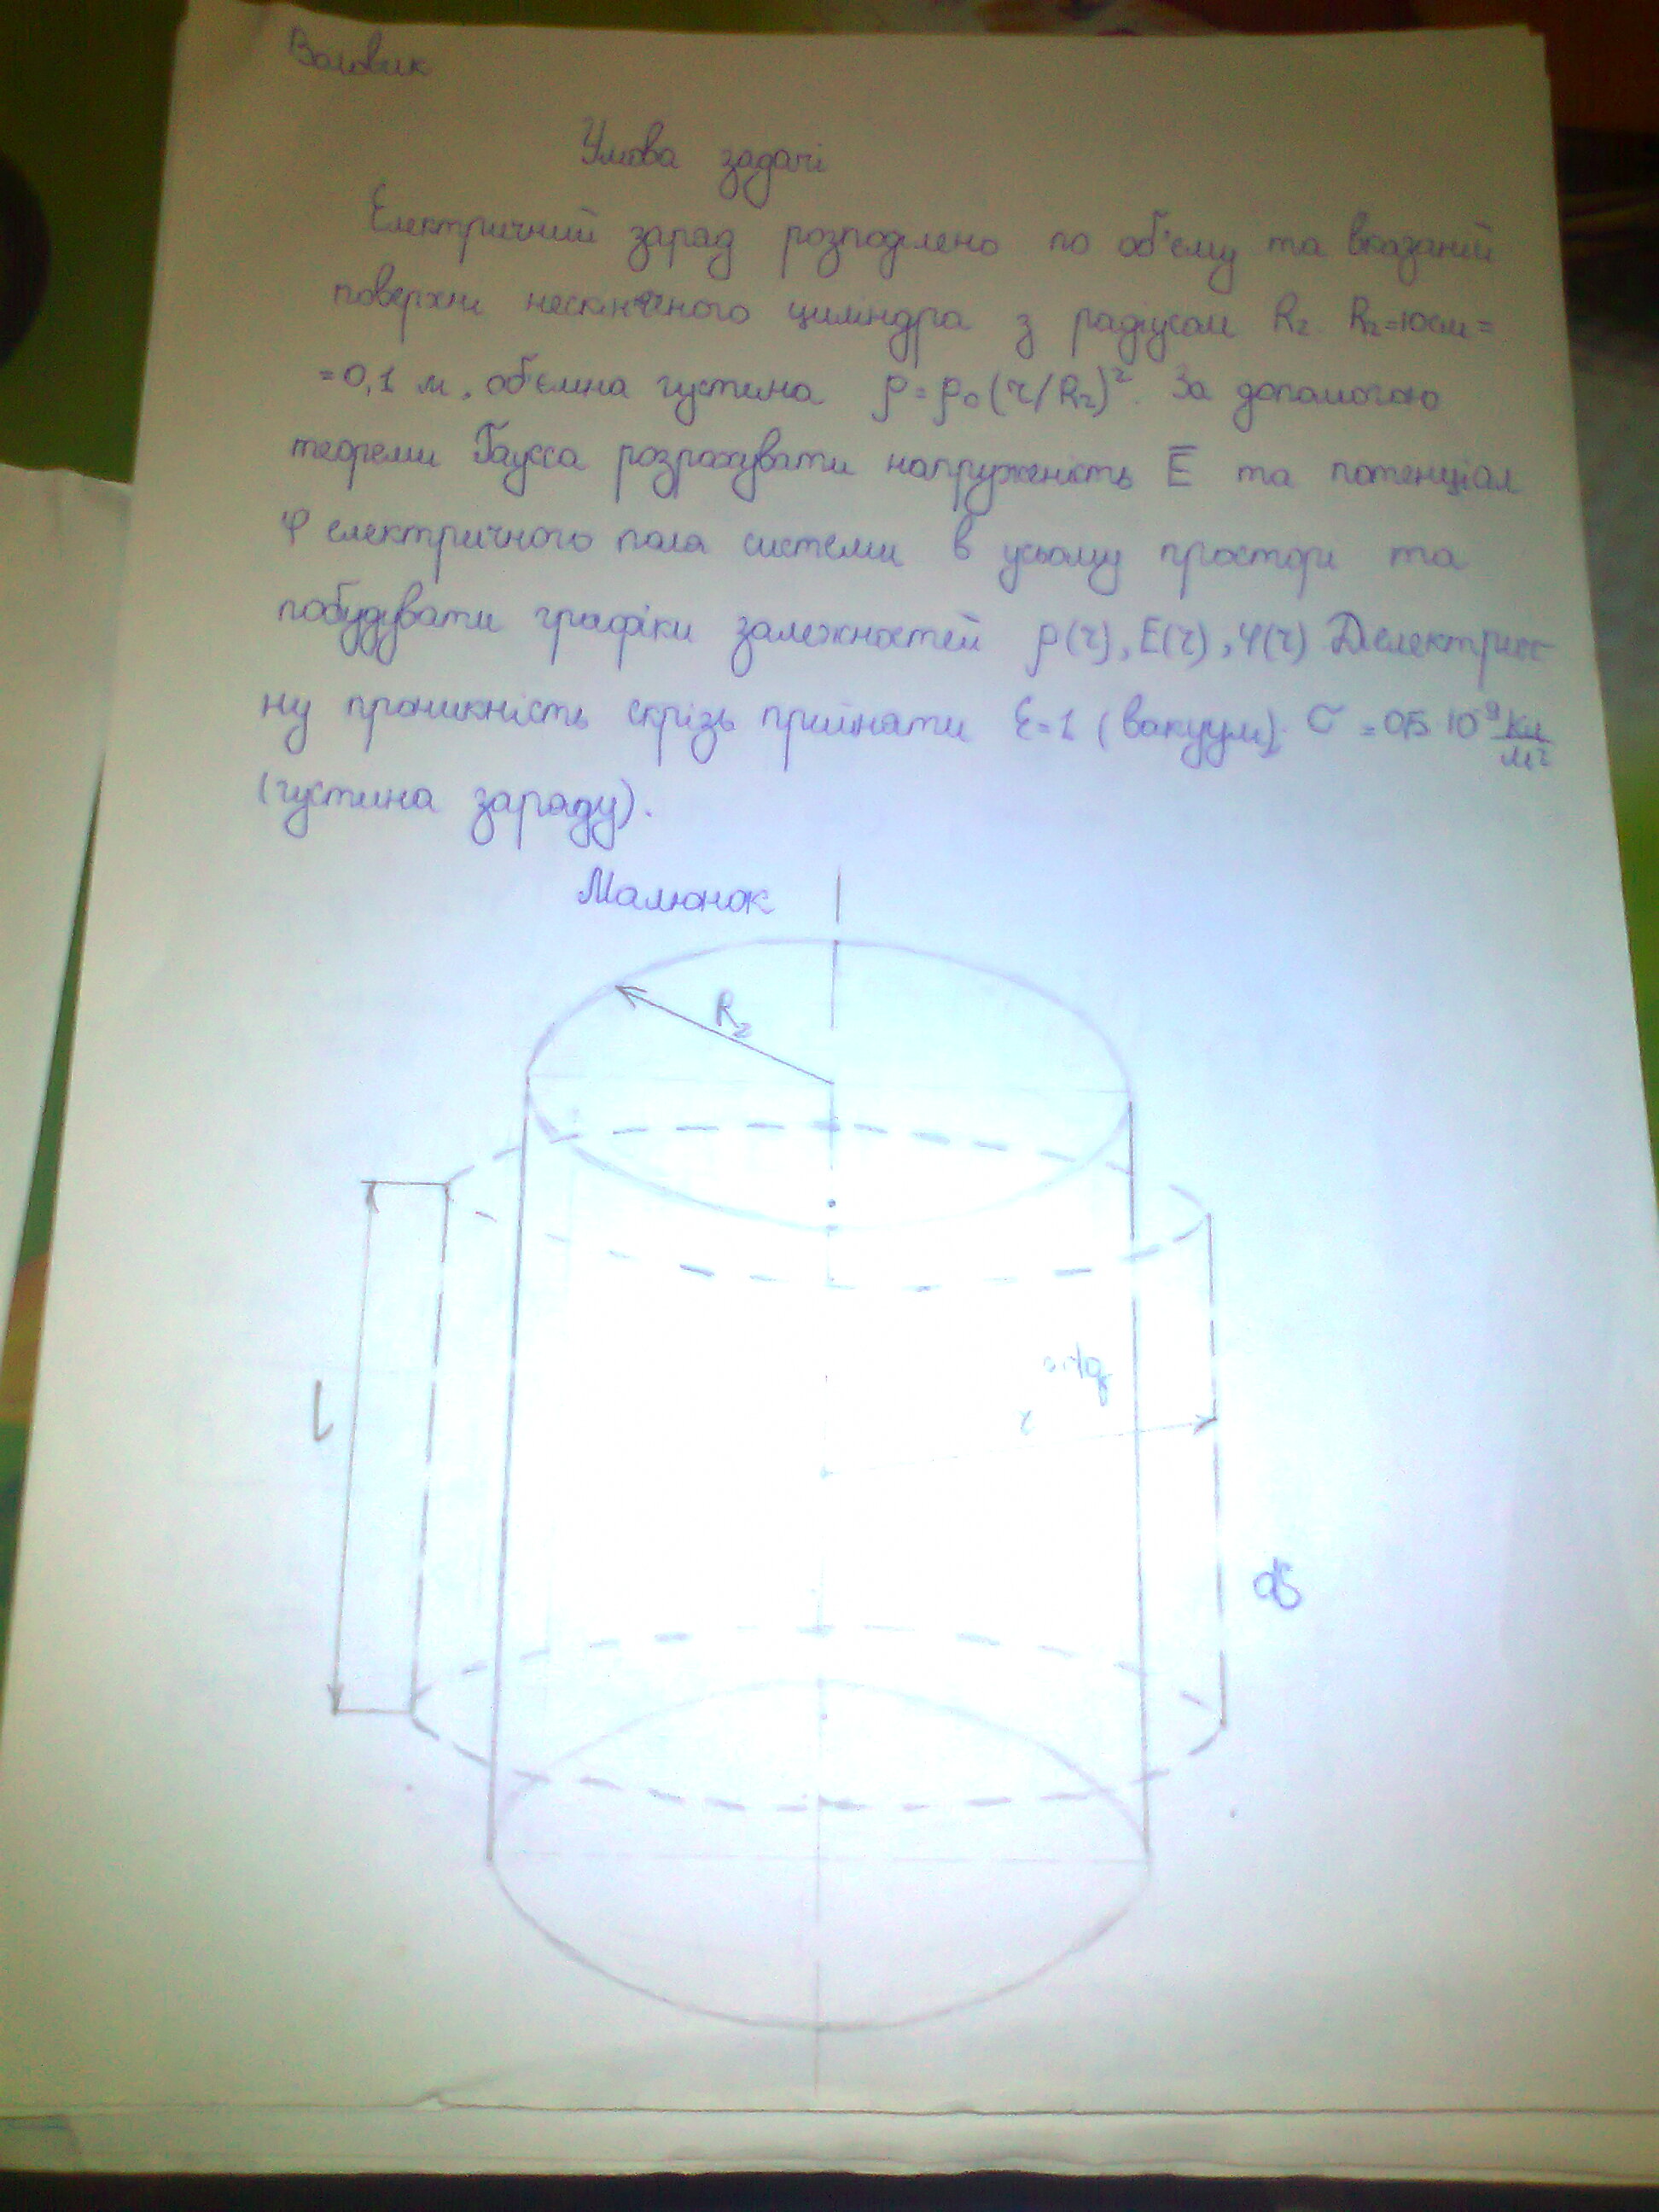 Воловик
Умова задачі
Електричний заряд розподілено по об'єму та вказаній
поверхні нескінченного циліндра з радіусом R₂. R₂=10см=
=0,1 м, об'ємна густина ρ=ρ₀(r/R₂)². За допомогою
теореми Гаусса розрахувати напруженість E̅ та потенціал
φ електричного поля системи в усьому просторі та
побудувати графіки залежностей ρ(r), E(r), φ(r) Діелектрич
ну проникність скрізь прийняти ε=1 (вакуум). σ = 0,5 10⁻⁹ Кл/м²
(густина заряду).
Малюнок
R₂
r
L
dS